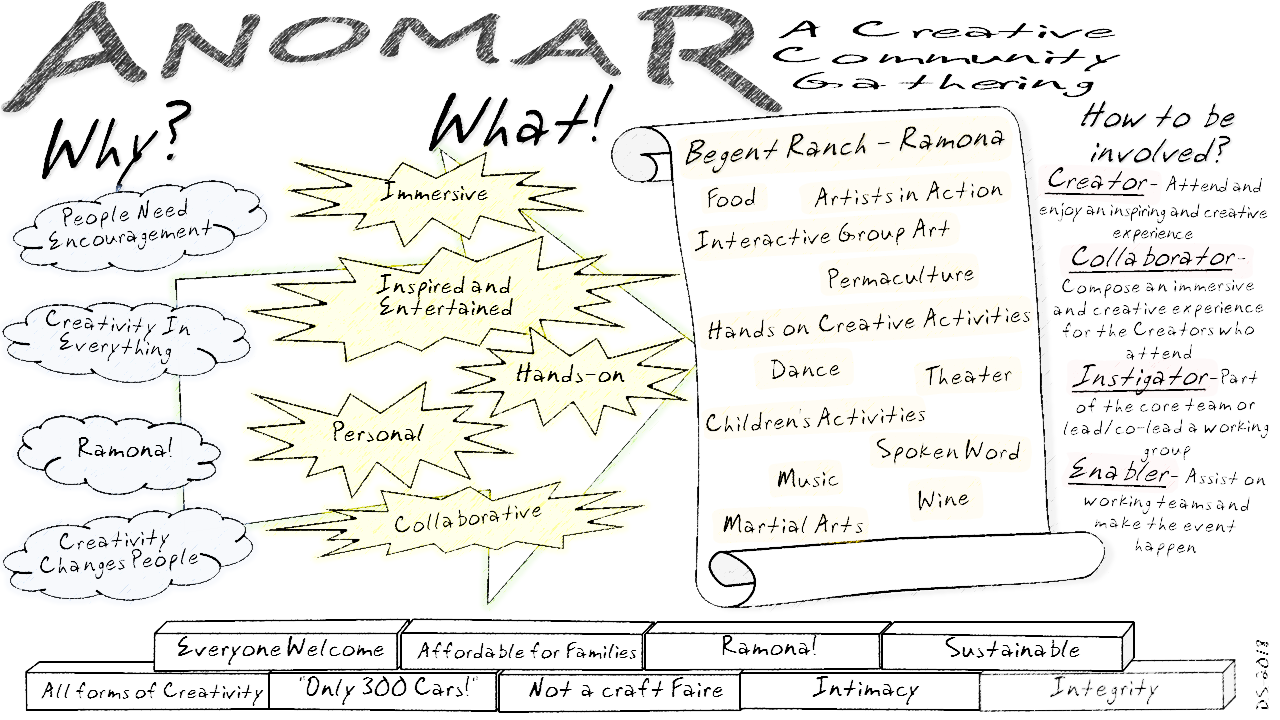 ANOMAR
A Creative
Community
Gathering
Why?
People Need
Encouragement
Creativity In
Everything
Ramona!
Creativity
Changes People
What!
Immersive
Inspired and
Entertained
Hands-on
Personal
Collaborative
Begent Ranch - Ramona
Food
Artists in Action
Interactive Group Art
Permaculture
Hands on Creative Activities
Dance
Theater
Children's Activities
Spoken Word
Music
Wine
Martial Arts
How to be
involved?
Creator- Attend and
enjoy an inspiring and creative
experience
Collaborator-
Compose an immersive
and creative experience
for the Creators who
attend
Instigator-Part
of the core team or
lead/co-lead a working
group
Enabler- Assist on
working teams and
make the event
happen
Everyone Welcome
Affordable for Families
Ramona!
Sustainable
All forms of Creativity
"Only 300 Cars!"
Not a craft Faire
Intimacy
Integrity